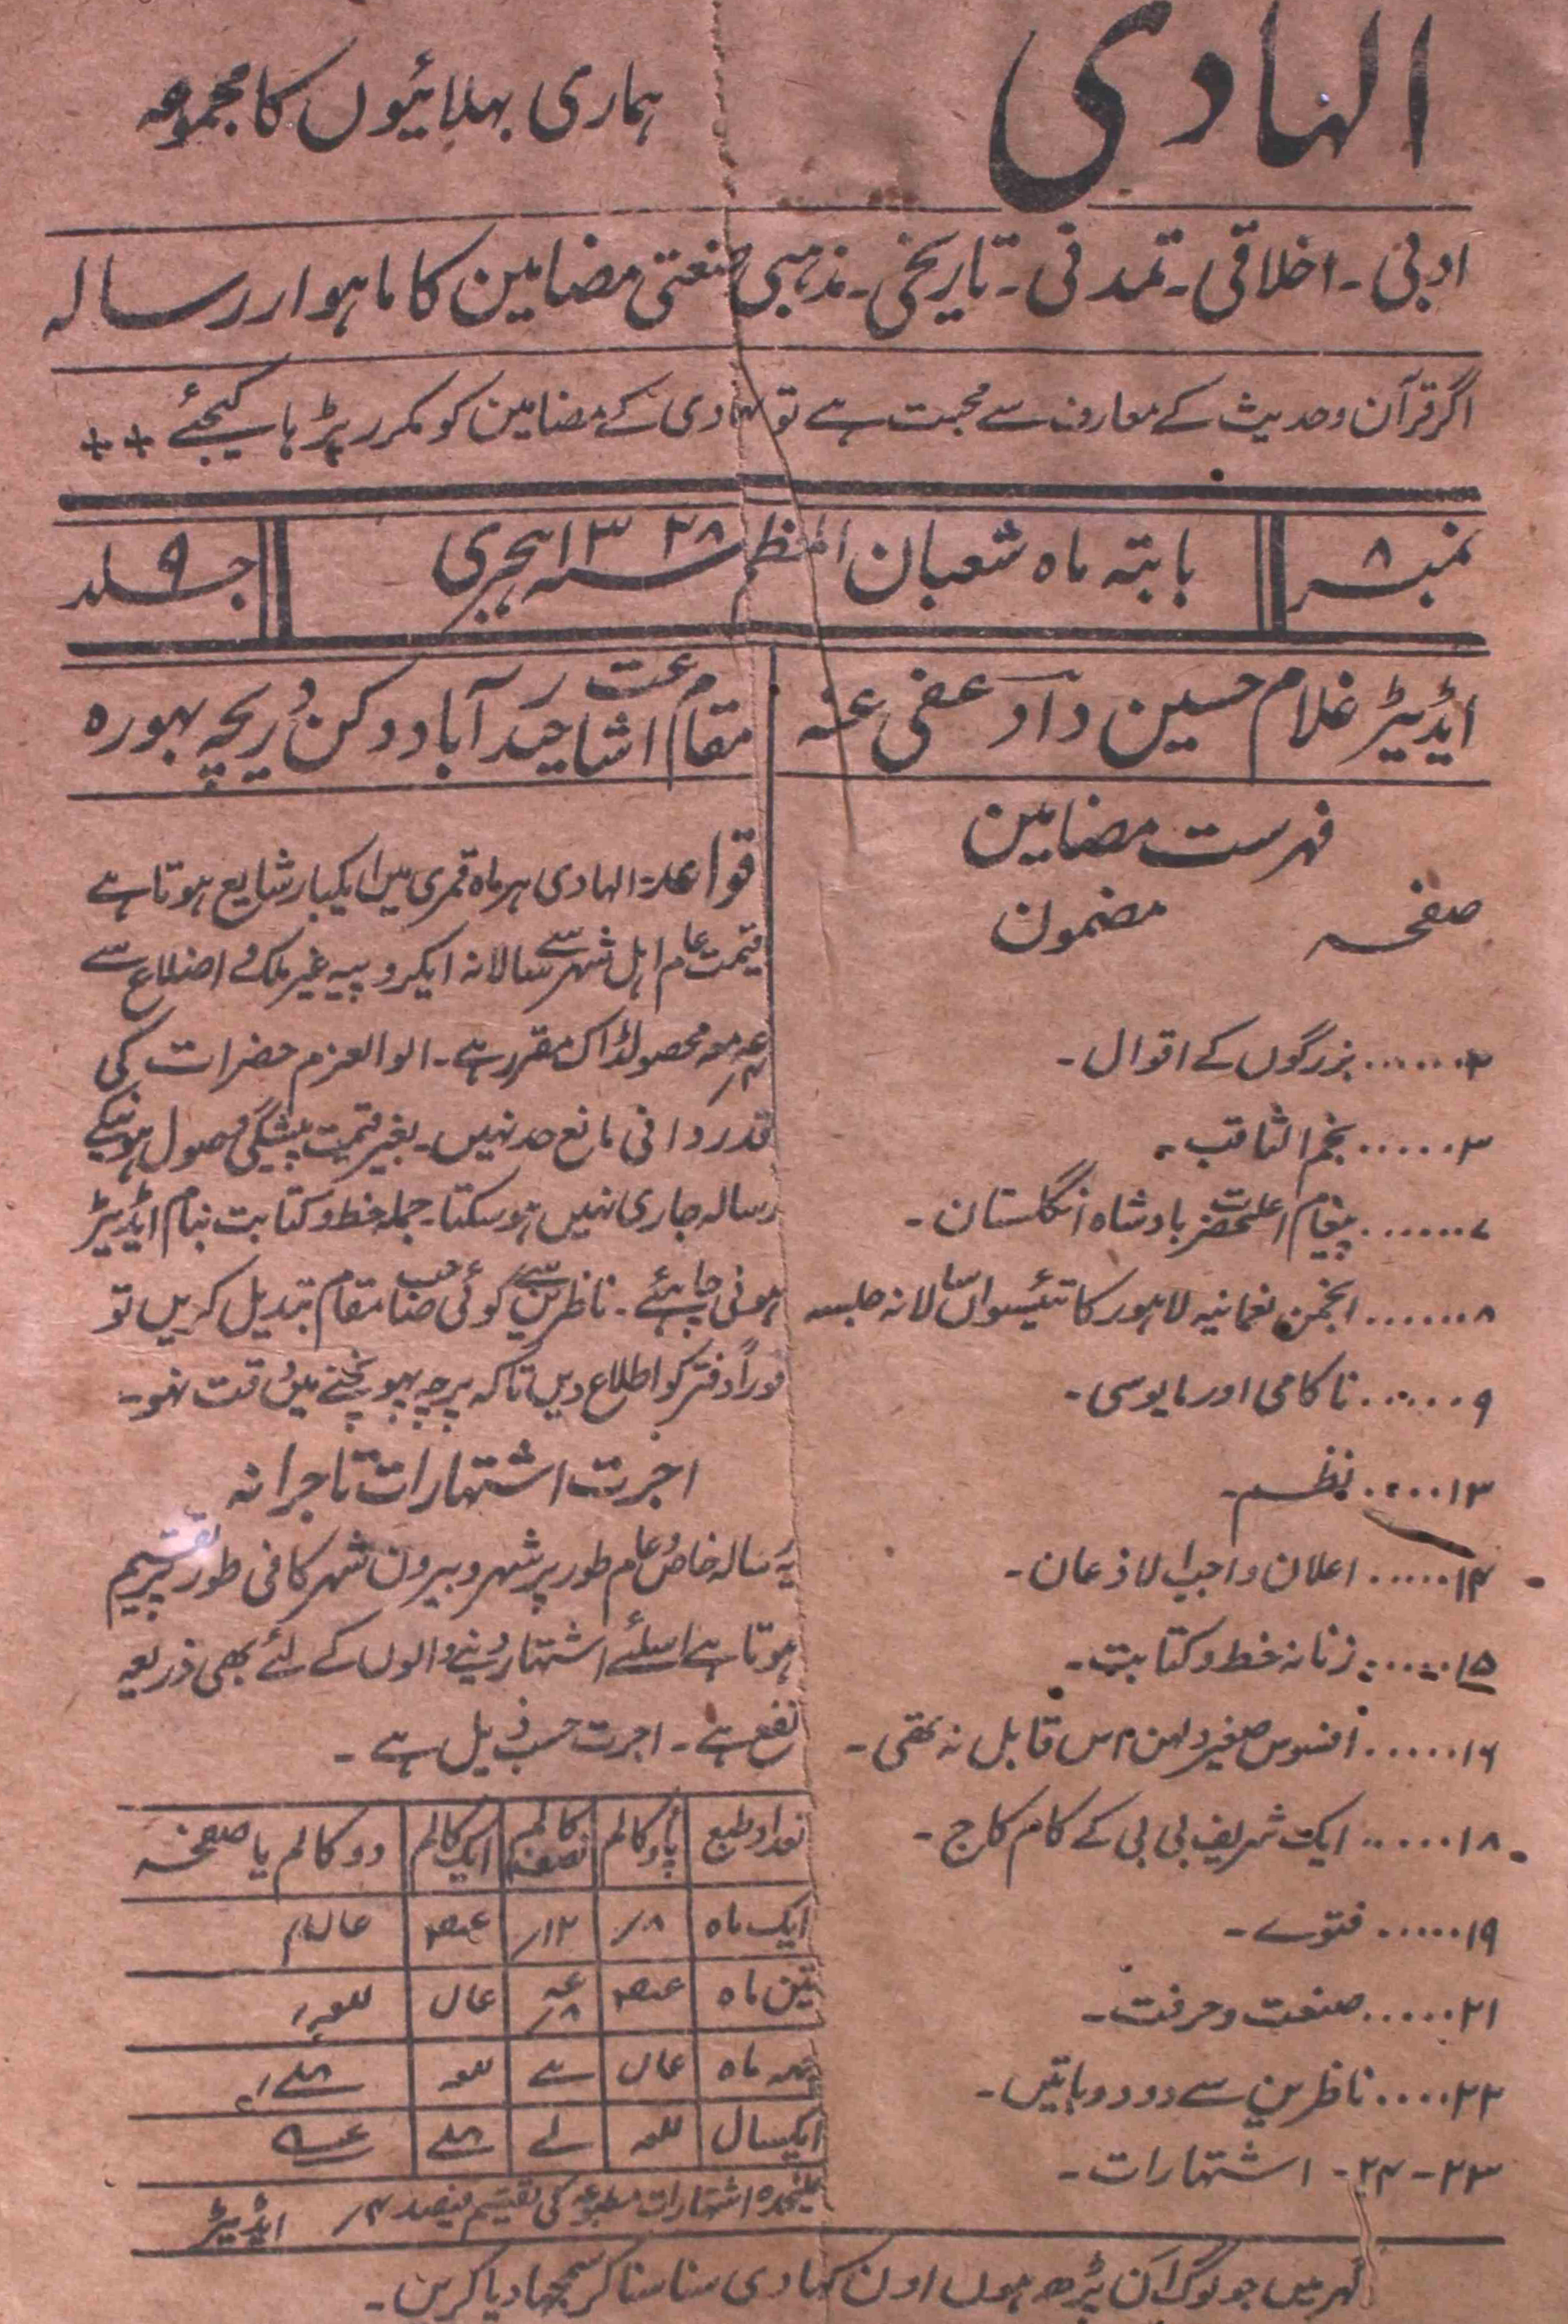 الہادی
ہماری بھلائیوں کا مجموعہ
ادبی ۔ اخلاقی ۔ تمدنی ۔ تاریخی ۔ مذہبی صنعتی مضامین کا ماہوار رسالہ
اگر قرآن و حدیث کے معارف سے محبت ہے تو الہادی کے مضامین کو مکرر پڑہا کیجئے ++
نمبر ۸
بابتہ ماہ شعبان المعظم سنہ ۱۳۳۸ ہجری
جلد ۹
ایڈیٹر غلام حسین داد عفی عنہ
مقام اشاعت حیدرآباد دکن دریچہ بہورہ
فہرست مضامین
صفحہ مضمون
۲....... بزرگوں کے اقوال ۔
۳...... نجم الثاقب ۔
۷....... پیغام اعلحضرت بادشاہ انگلستان ۔
۸....... انجمن نعمانیہ لاہور کا تئیسواں سالانہ جلسہ
۹...... ناکامی اور مایوسی ۔
۱۳..... نظم ۔
۱۴..... اعلان واجب الاذعان ۔
۱۵..... زنانہ خط و کتابت ۔
۱۶...... افسوس صغیر دلہن اس قابل نہ تھی ۔
۱۸...... ایک شریف بی بی کے کام کاج ۔
۱۹..... فتوے ۔
۲۱..... صنعت و حرفت ۔
۲۲..... ناظرین سے دو دو باتیں ۔
۲۳ - ۲۴ - اشتہارات ۔
قواعد: الہادی ہر ماہ قمری میں ایکبار شایع ہوتا ہے
قیمت عام اہل شہر سے سالانہ ایکروپیہ غیر ملک و اضلاع سے
معہ محصولڈاک مقرر ہے ۔ الوالعزم حضرات کی
قدردانی مانع حد نہیں ۔ بغیر قیمت پیشگی وصول ہونیکے
رسالہ جاری نہیں ہوسکتا ۔ جملہ خط و کتابت بنام ایڈیٹر
ہونی چاہئے ۔ ناظرین سے کوئی صاحب مقام تبدیل کریں تو
فوراً دفتر کو اطلاع دیں تاکہ پرچہ پہونچنے میں دقت نہو ۔
اجرت اشتہارات تاجرانہ
یہ رسالہ خاص و عام طور پر شہر و بیرون شہر کافی طور پر تقسیم
ہوتا ہے اسلئے اشتہار دینے والوں کے لئے بھی ذریعہ
نفع ہے ۔ اجرت حسب ذیل ہے ۔
تعداد طبع پاؤ کالم نصف کالم ایک کالم دو کالم یا صفحہ
ایک ماہ ۸/ ۱۲/
تین ماہ
چھہ ماہ
ایکسال
علیحدہ اشتہارات مطبوعہ کی تقسیم فیصد ۴/ ایڈیٹر
گھر میں جو لوگ ان پڑھ ہوں اون کو ہادی سنا سنا کر سمجھا دیا کریں ۔